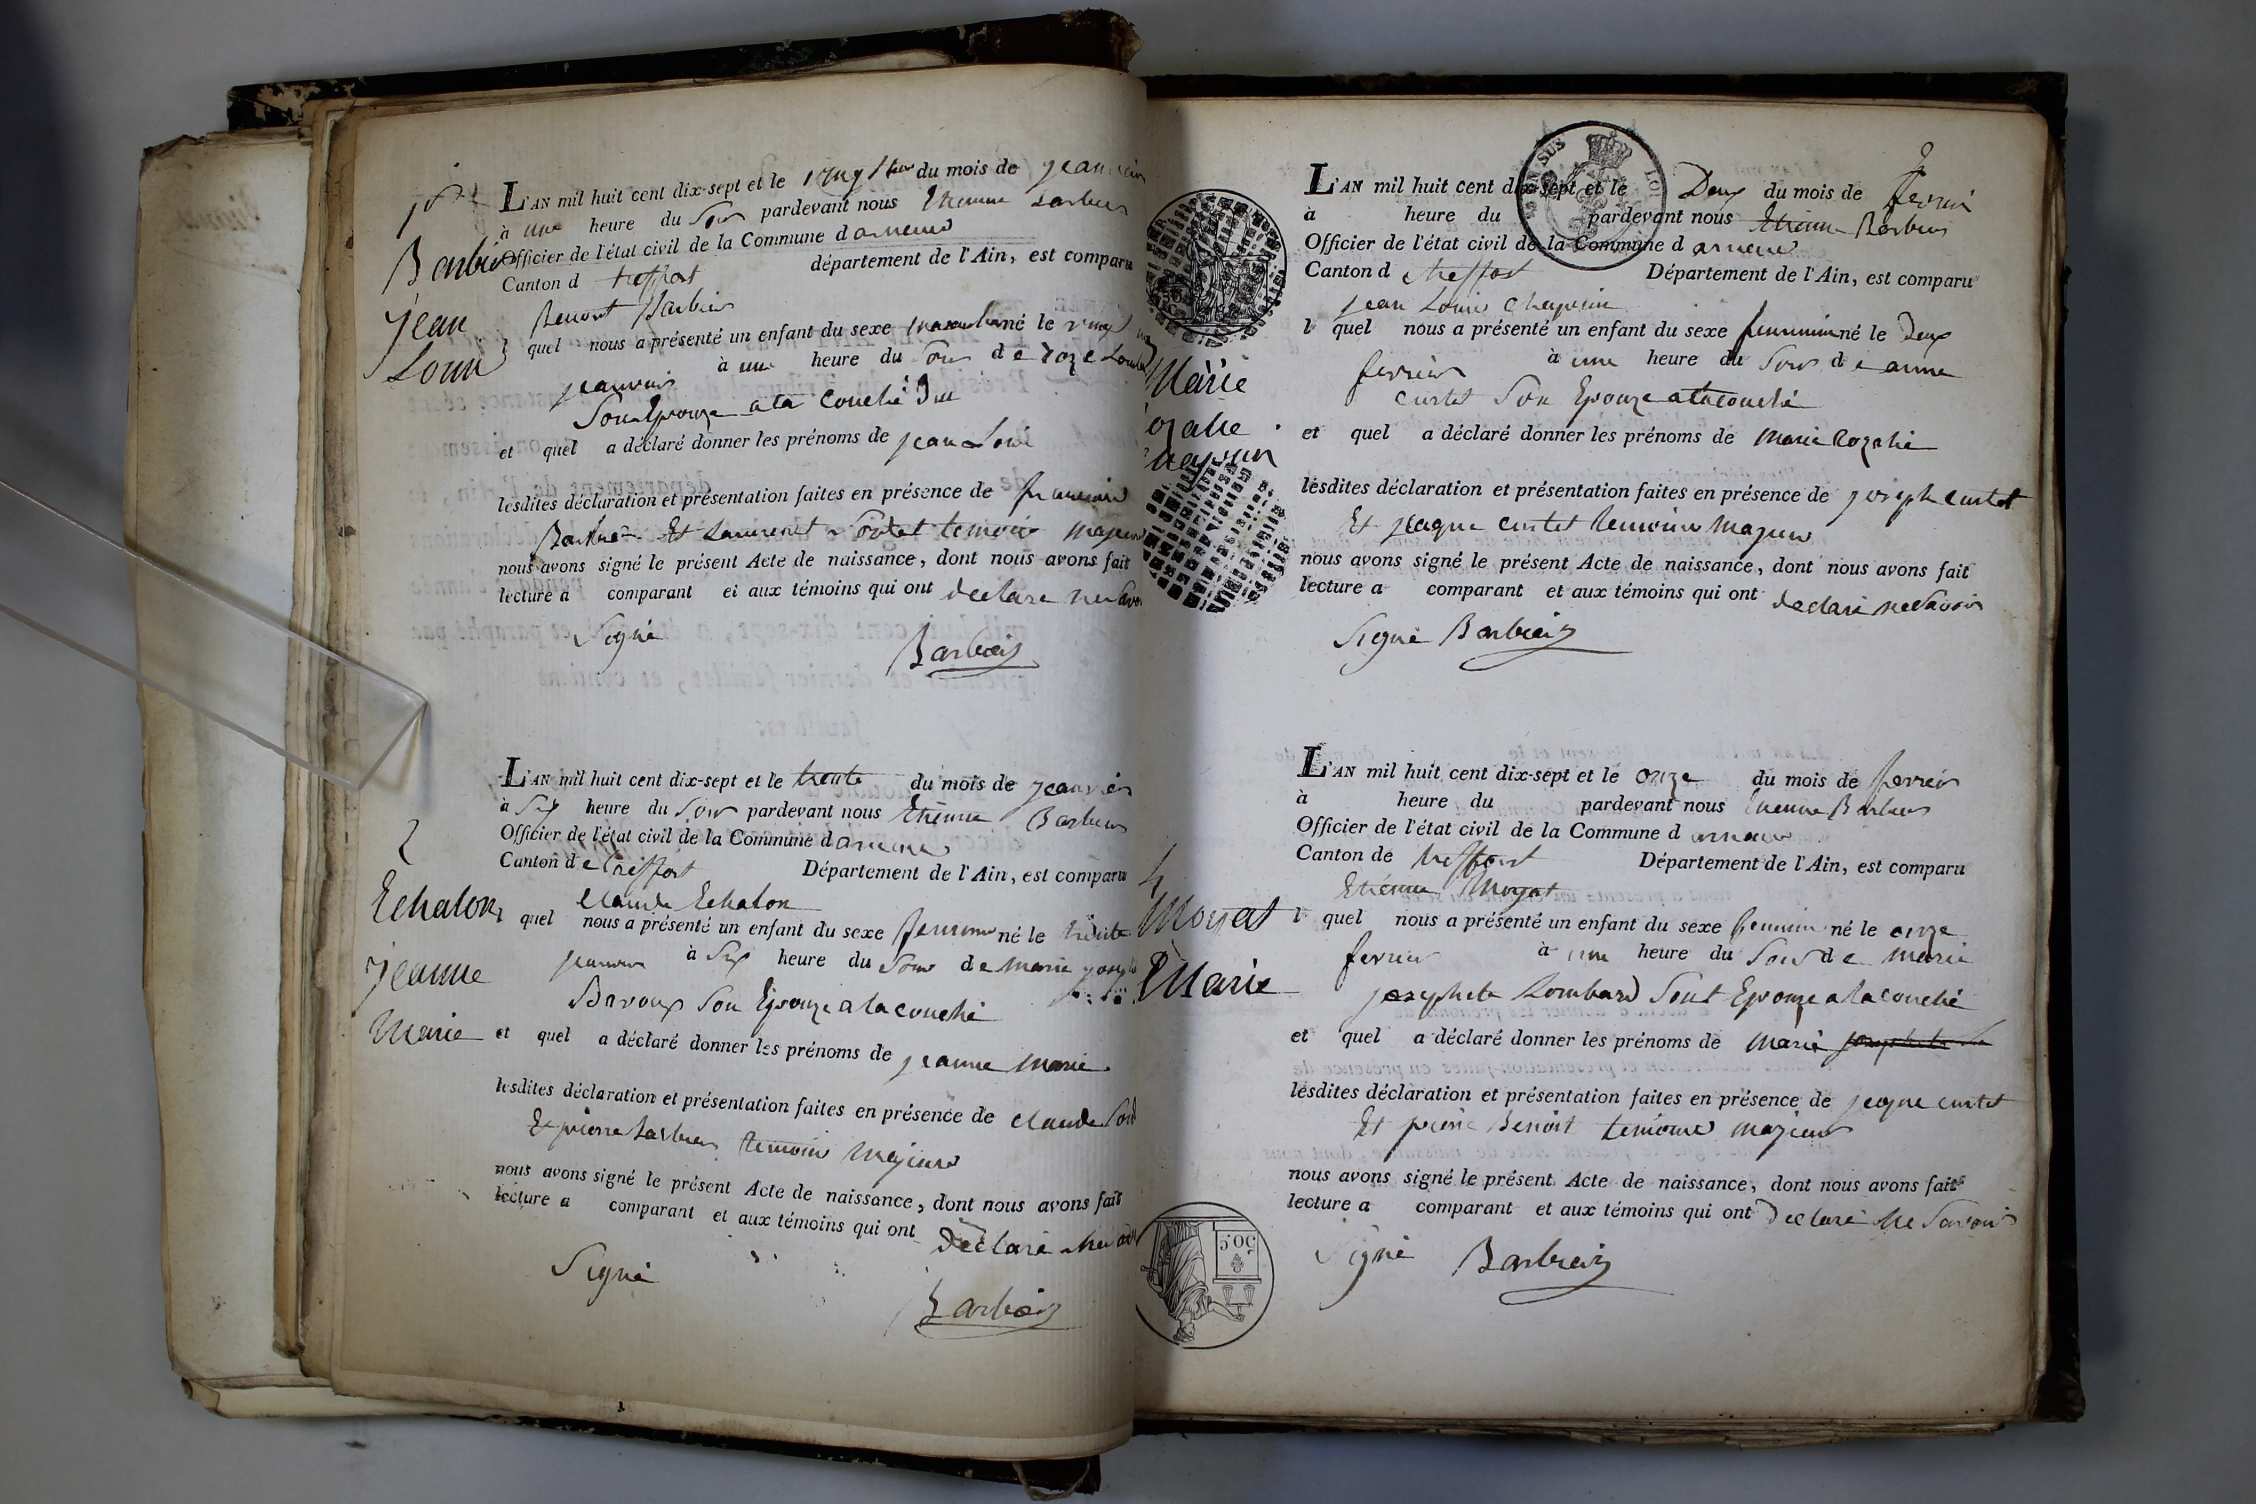 1er
Barbier
Jean
Louis
L'AN mil huit cent dix-sept et le du mois de jeanvier
à une heure du Soir pardevant nous Etienne Barbier
Officier de l'état civil de la Commune d arnans
Canton d treffort département de l'Ain, est comparu
Benoit Barbier
l quel nous a présenté un enfant du sexe masculin né le vingt
jeanvier à une heure du Soir d e roze
Son Epouze a la couché
et quel a déclaré donner les prénoms de jean Loui
lesdites déclaration et présentation faites en présence de francois
Barbier Et Laurent temoin majeur
nous avons signé le présent Acte de naissance, dont nous avons fait
lecture a comparant et aux témoins qui ont declare
Signé
Barbier
2
Echalon
Jeanne
Marie
L'AN mil huit cent dix-sept et le trente du mois de jeanvier
à Six heure du Soir pardevant nous Etienne Barbier
Officier de l'état civil de la Commune d arnans
Canton d e treffort Département de l'Ain, est comparu
Claude Echalon
l quel nous a présenté un enfant du sexe feminin né le trente
jeanvier à Six heure du Soir de marie
Bavoux Son Epouze a la couché
et quel a déclaré donner les prénoms de jeanne marie
lesdites déclaration et présentation faites en présence de claude
Et pierre Barbier temoin majeurs
nous avons signé le présent Acte de naissance, dont nous avons fait
lecture a comparant et aux témoins qui ont declaré
Signé
Barbier
3
Marie
Rozalie
Chapuin
L'AN mil huit cent dix-sept et le Deux du mois de fevrier
à heure du pardevant nous Etienne Barbier
Officier de l'état civil de la Commune d arnans
Canton d treffort Département de l'Ain, est comparu
jean Louis
l quel nous a présenté un enfant du sexe feminin né le Deux
fevrier à une heure du Soir d e anne
curtet Son Epouze a la couché
et quel a déclaré donner les prénoms de marie Rozalie
lesdites déclaration et présentation faites en présence de joseph curtet
Et jeaque curtet temoins majeur
nous avons signé le présent Acte de naissance, dont nous avons fait
lecture a comparant et aux témoins qui ont declaré ne Savoir
Signé Barbier
4
Moyat
Marie
L'AN mil huit cent dix-sept et le onze du mois de fevrier
à heure du pardevant nous Etienne Barbier
Officier de l'état civil de la Commune d arnans
Canton de treffort Département de l'Ain, est comparu
Etienne Moyat
l quel nous a présenté un enfant du sexe feminin né le onze
fevrier à une heure du Soir d e marie
josephete Lombard Sont Epouze a la couché
et quel a déclaré donner les prénoms de marie josephete
lesdites déclaration et présentation faites en présence de jeaque curtet
Et pierre Benoit temoins majeur
nous avons signé le présent Acte de naissance, dont nous avons fait
lecture a comparant et aux témoins qui ont declaré ne Savoir
Signé Barbier
50C